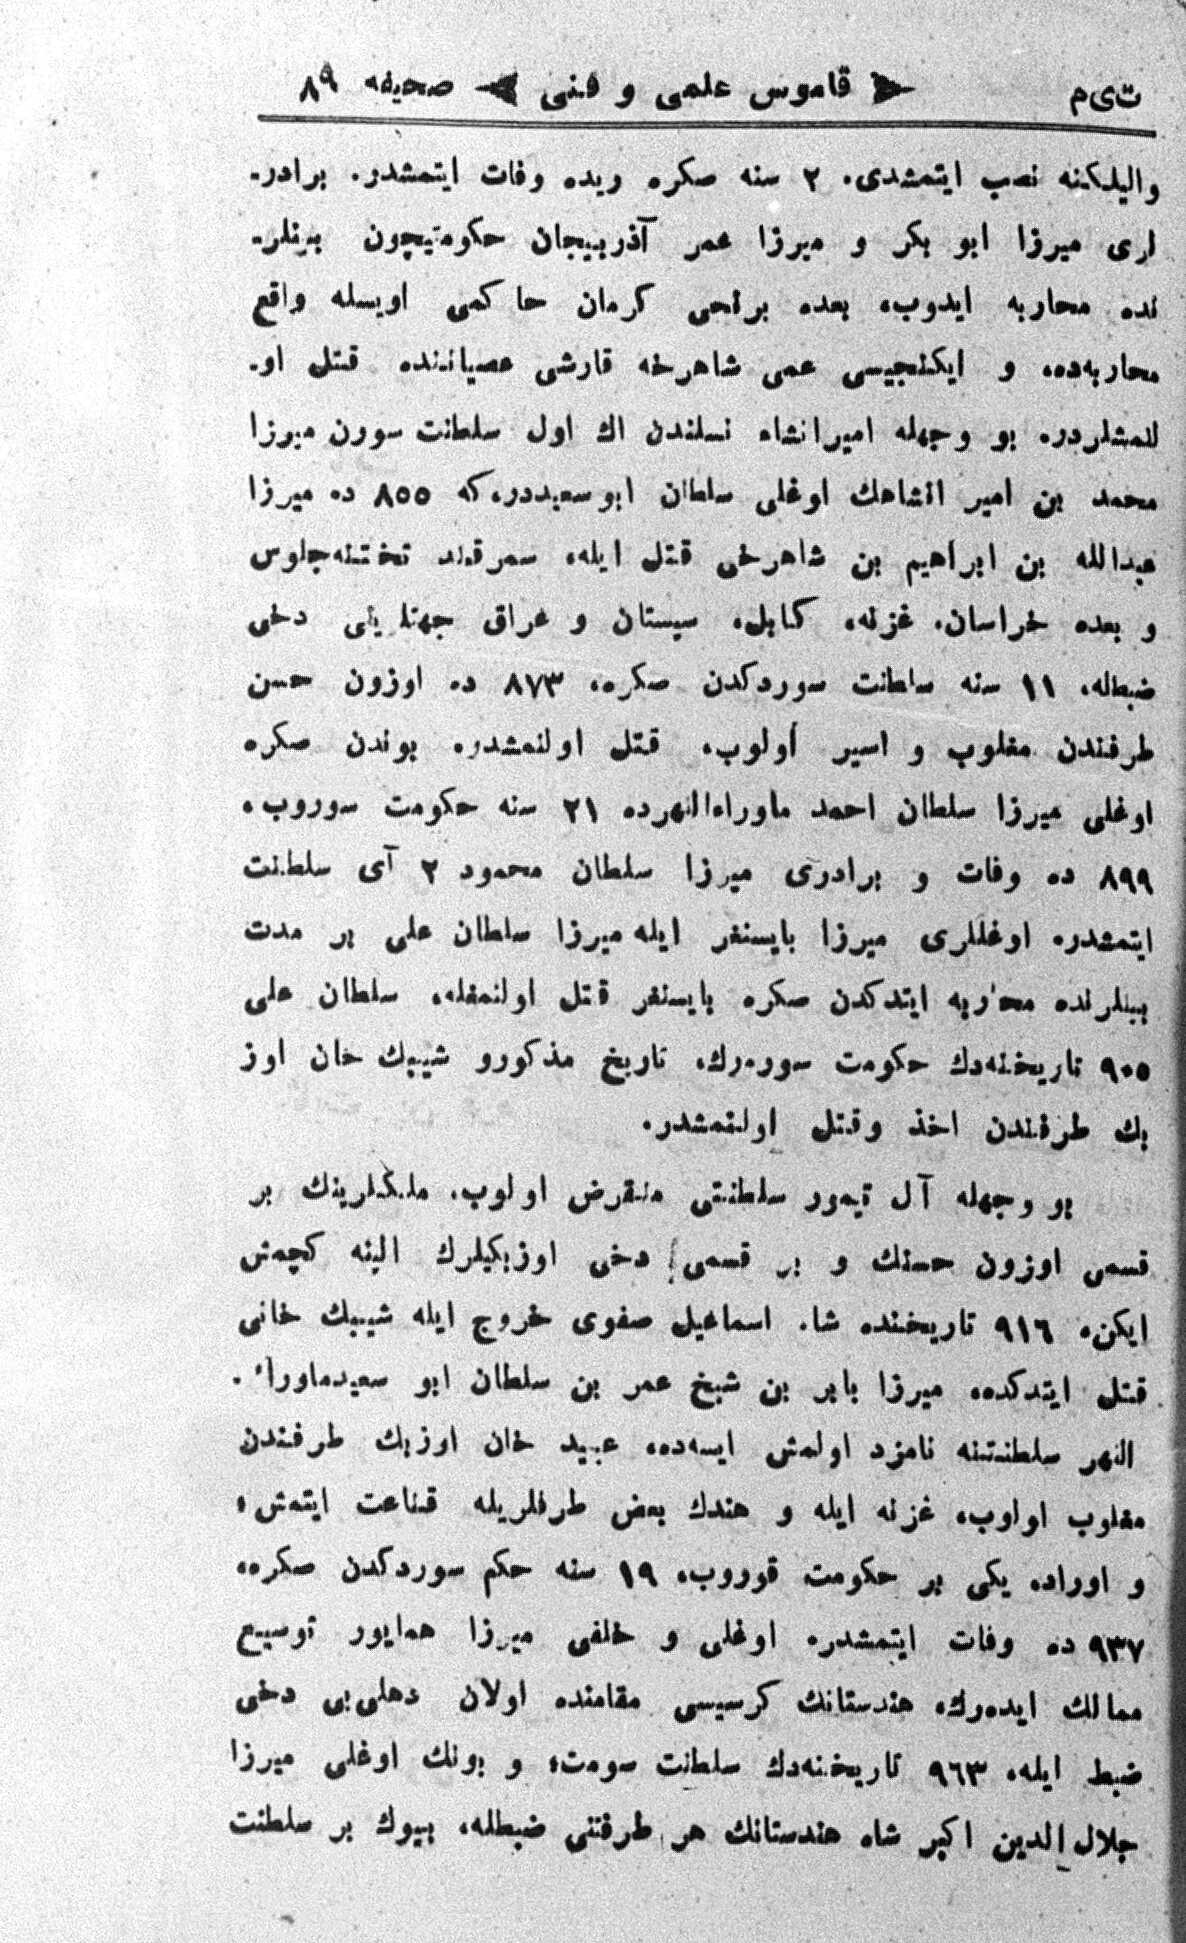 تیم قاموس علمی و فنی صحیفه ٨٩
والیلکنه نصب ایتمشدی. ٢ سنه صکره ریده وفات ایتمشدر. برادر-
لری میرزا ابو بکر و میرزا عمر آذربیجان حکومتیچون بینلر-
نده محاربه ایدوب، بعده برنجی کرمان حاکمی اویسله واقع
محاربه‌ده، و ایکنجیسی عمی شاهرخه قارشی عصیاننده قتل او-
لنمشلردر. بو وجهله امیرانشاه نسلندن اك اول سلطنت سورن میرزا
محمد بن امیر انشاهك اوغلی سلطان ابو سعیددر، که ٨٥٥ ده میرزا
عبدالله بن ابراهیم بن شاهرخی قتل ایله، سمرقند تختنه جلوس
و بعده خراسان، غزنه، کابل، سیستان و عراق جهتلرینی دخی
ضبطله، ١١ سنه سلطنت سوردکدن صکره، ٨٧٣ ده اوزون حسن
طرفندن مغلوب و اسیر اولوب، قتل اولنمشدر. بوندن صکره
اوغلی میرزا سلطان احمد ماوراءالنهرده ٢١ سنه حکومت سوروب،
٨٩٩ ده وفات و برادری میرزا سلطان محمود ٢ آی سلطنت
ایتمشدر. اوغللری میرزا بایسنغر ایله میرزا سلطان علی بر مدت
بینلرنده محاربه ایتدکدن صکره بایسنغر قتل اولنمغله، سلطان علی
٩٠٥ تاریخنه‌دك حکومت سوره‌رك، تاریخ مذکورو شیبك خان اوز
بك طرفندن اخذ وقتل اولنمشدر.
بو وجهله آل تیمور سلطنتی منقرض اولوب، ملکلرینك بر
قسمی اوزون حسنك و بر قسمی دخی اوزبکیلرك الینه کچمش
ایکن، ٩١٦ تاریخنده شاه اسماعیل صفوی خروج ایله شیبك خانی
قتل ایتدکده، میرزا بابر بن شیخ عمر بن سلطان ابو سعیدماوراء-
النهر سلطنتنه نامزد اولمش ایسه‌ده، عبید خان اوزبك طرفندن
مغلوب اولوب، غزنه ایله و هندك بعض طرفلریله قناعت ایتمش؛
و اوراده یکی بر حکومت قوروب، ١٩ سنه حکم سوردکدن صکره،
٩٣٧ ده وفات ایتمشدر. اوغلی و خلفی میرزا همایون توسیع
ممالك ایده‌رك، هندستانك کرسیسی مقامنده اولان دهلی‌یی دخی
ضبط ایله، ٩٦٣ تاریخنه‌دك سلطنت سورمش؛ و بونك اوغلی میرزا
جلال الدین اکبر شاه هندستانك هر طرفنی ضبطله، بیوك بر سلطنت